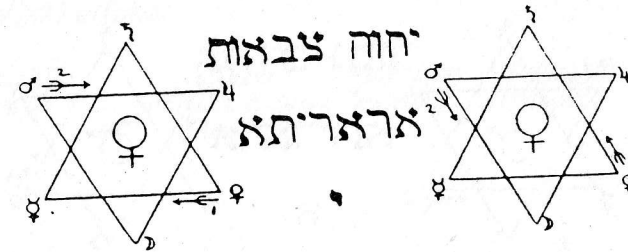 יהוה צבאות
אראריתא
2
1
2